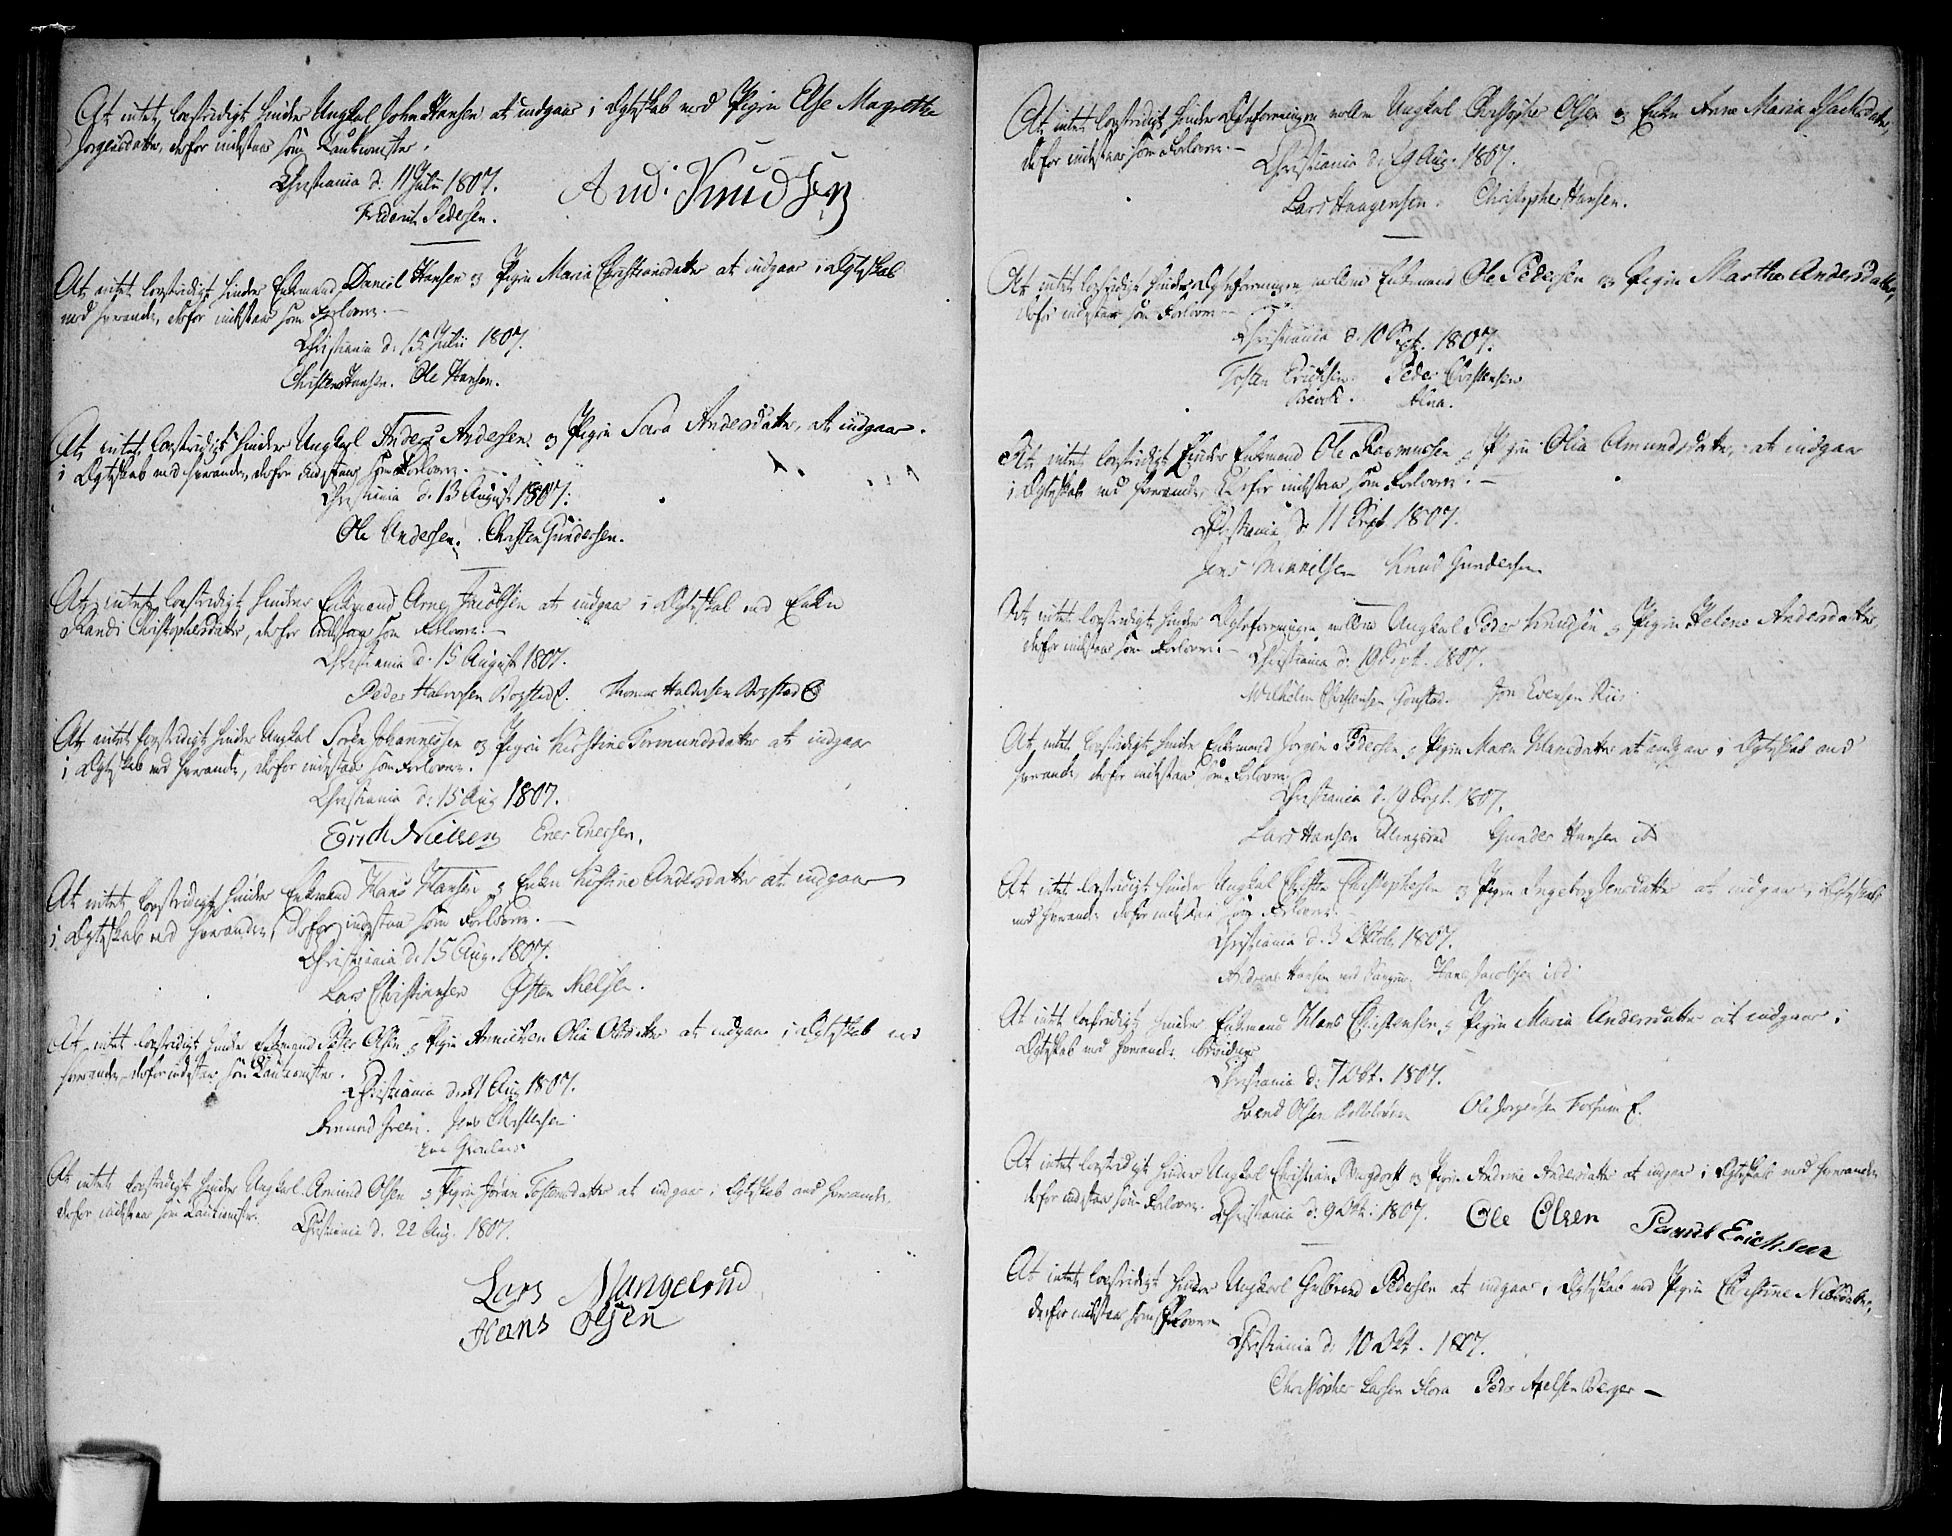 At intet lovstridigt hindrer Ungkal John Hansen at indgaae i Ægteskab med Pigen Else Magrethe
Jørgensdatter, derfor indestaar som Kautionister.
Christiania d: 11 Julii 1807.
Friderich Pedersen. And: Knudsen
At intet lovstridigt hindrer Enkemand Daniel Hansen og Pigen Maria Christiansdatter at indgaae i Ægteskab
med hverandre, derfor indestaar som Forlovere.
Christiania d: 15 Julii 1807.
Christen Hansen. Ole Hansen.
At intet lovstridigt hindrer Ungkarl Anders Andersen og Pigen Sara Andersdatter, at indgaae
i Ægteskab med hverandre, derfor indestaar som Forlovere.
Christiania d. 13 August 1807.
Ole Andersen. Christen Gundersen.
At intet lovstridigt hindrer Enkemand Arne Jacobsen at indgaae i Ægteskab med Enken
Randi Christophersdatter, derfor indestaar som Forlovere.
Christiania d: 15 August 1807.
Peder Halvorsen Bogstad. Thomas Halvorsen Bogstad
At intet lovstridigt hindrer Ungkal Søren Johannessen og Pigen Kirstine Tormundsdatter at indgaae
i Ægteskab med hverandre, derfor indestaar som Forlovere.
Christiania d: 15 Aug 1807.
Erich Nielsen Ener Enersen.
At intet lovstridigt hindrer Enkemand Hans Hansen og Enken Kirstine Andersdatter at indgaae
i Ægteskab med hverandre, derfor indestaar som Forlovere.
Christiania d. 15 Aug. 1807.
Lars Christiansen Østen Nielsen.
At intet lovstridigt hindrer Enkemand Peter Olsen og Pigen Annichen Olia Olsdatter at indgaae i Ægteskab med
hverandre, derfor indestaar som Kautionister.
Christiania d. 21 Aug 1807.
Amund Green. Jens Christensen
At intet lovstridigt hindrer Ungkarl Amund Olsen og Pigen Jøran Tostensdatter at indgaae i Ægteskab med hverandre.
derfor indestaar som Kautionister.
Christiania d. 22 Aug. 1807.
Lars Mangelrud
Hans Olsen
At intet lovstridigt hindrer Ægteforeningen mellem Ungkarl Christopher Olsen og Enken Anne Maria Isachsdatter,
derfor indestaar som Forlovere.
Christiania d. 29 Aug. 1807.
Lars Haagensen. Christopher Hansen.
At intet lovstridigt hindrer Ægteforeningen mellem Enkemand Ole Pedersen og Pigen Marthe Andersdatter,
derfor indestaar som Forlovere
Christiania d. 10 Sept. 1807.
Tosten Erichsen Peder Christensen
At intet lovstridigt hindrer Enkemand Ole Rasmussen og Pigen Olia Amundsdatter, at indgaae
i Ægteskab med hverandre, derfor indestaar som Forlovere.
Christiania d. 11 Sept. 1807.
Jens Mikkelsen Knud Gundersen
At intet lovstridigt hindrer Ægteforeningen mellem Ungkarl Peder Knudsen og Pigen Helene Andersdatter,
derfor indestaar som Forlovere.
Christiania d. 19 Sept. 1807.
Wilhelm Christensen Jon Evensen Riis
At intet lovstridigt hindrer Enkemand Jørgen Pedersen og Pigen Maren Hansdatter at indgaae i Ægteskab med
hverandre, derfor indestaar som Forlovere
Christiania d. 19 Sept. 1807.
Lars Hansen Gunder Hansen
At intet lovstridigt hindrer Ungkal Christen Christophersen og Pigen Ingeborg Jensdatter at indgaae i Ægteskab
med hverandre derfor indestaar som Forlovere.
Christiania d. 3 Oktob. 1807.
Andreas Hansen Hans Jacobsen ibd
At intet lovstridigt hindrer Enkemand Hans Christensen og Pigen Maria Andersdatter at indgaae i
Ægteskab med hverandre bevidner
Christiania d: 7 Okt. 1807.
Svend Olsen Ole Jørgensen Fossum
At intet lovstridigt hindrer Ungkal Christian Bergdorff og Pigen Andrine Andersdatter at indgaae i Ægteskab med hverandre
derfor indestaar som Forlovere.
Christiania d: 9 Okt. 1807. Ole Olsen Poul Erichsen
At intet lovstridigt hindrer Ungkarl Gulbrand Pedersen at indgaae i Ægteskab med Pigen Christine Nielsdatter,
derfor indestaar som Forlovere
Christiania d. 10 Okt. 1807.
Christopher Larsen Peder Axelsen Berger